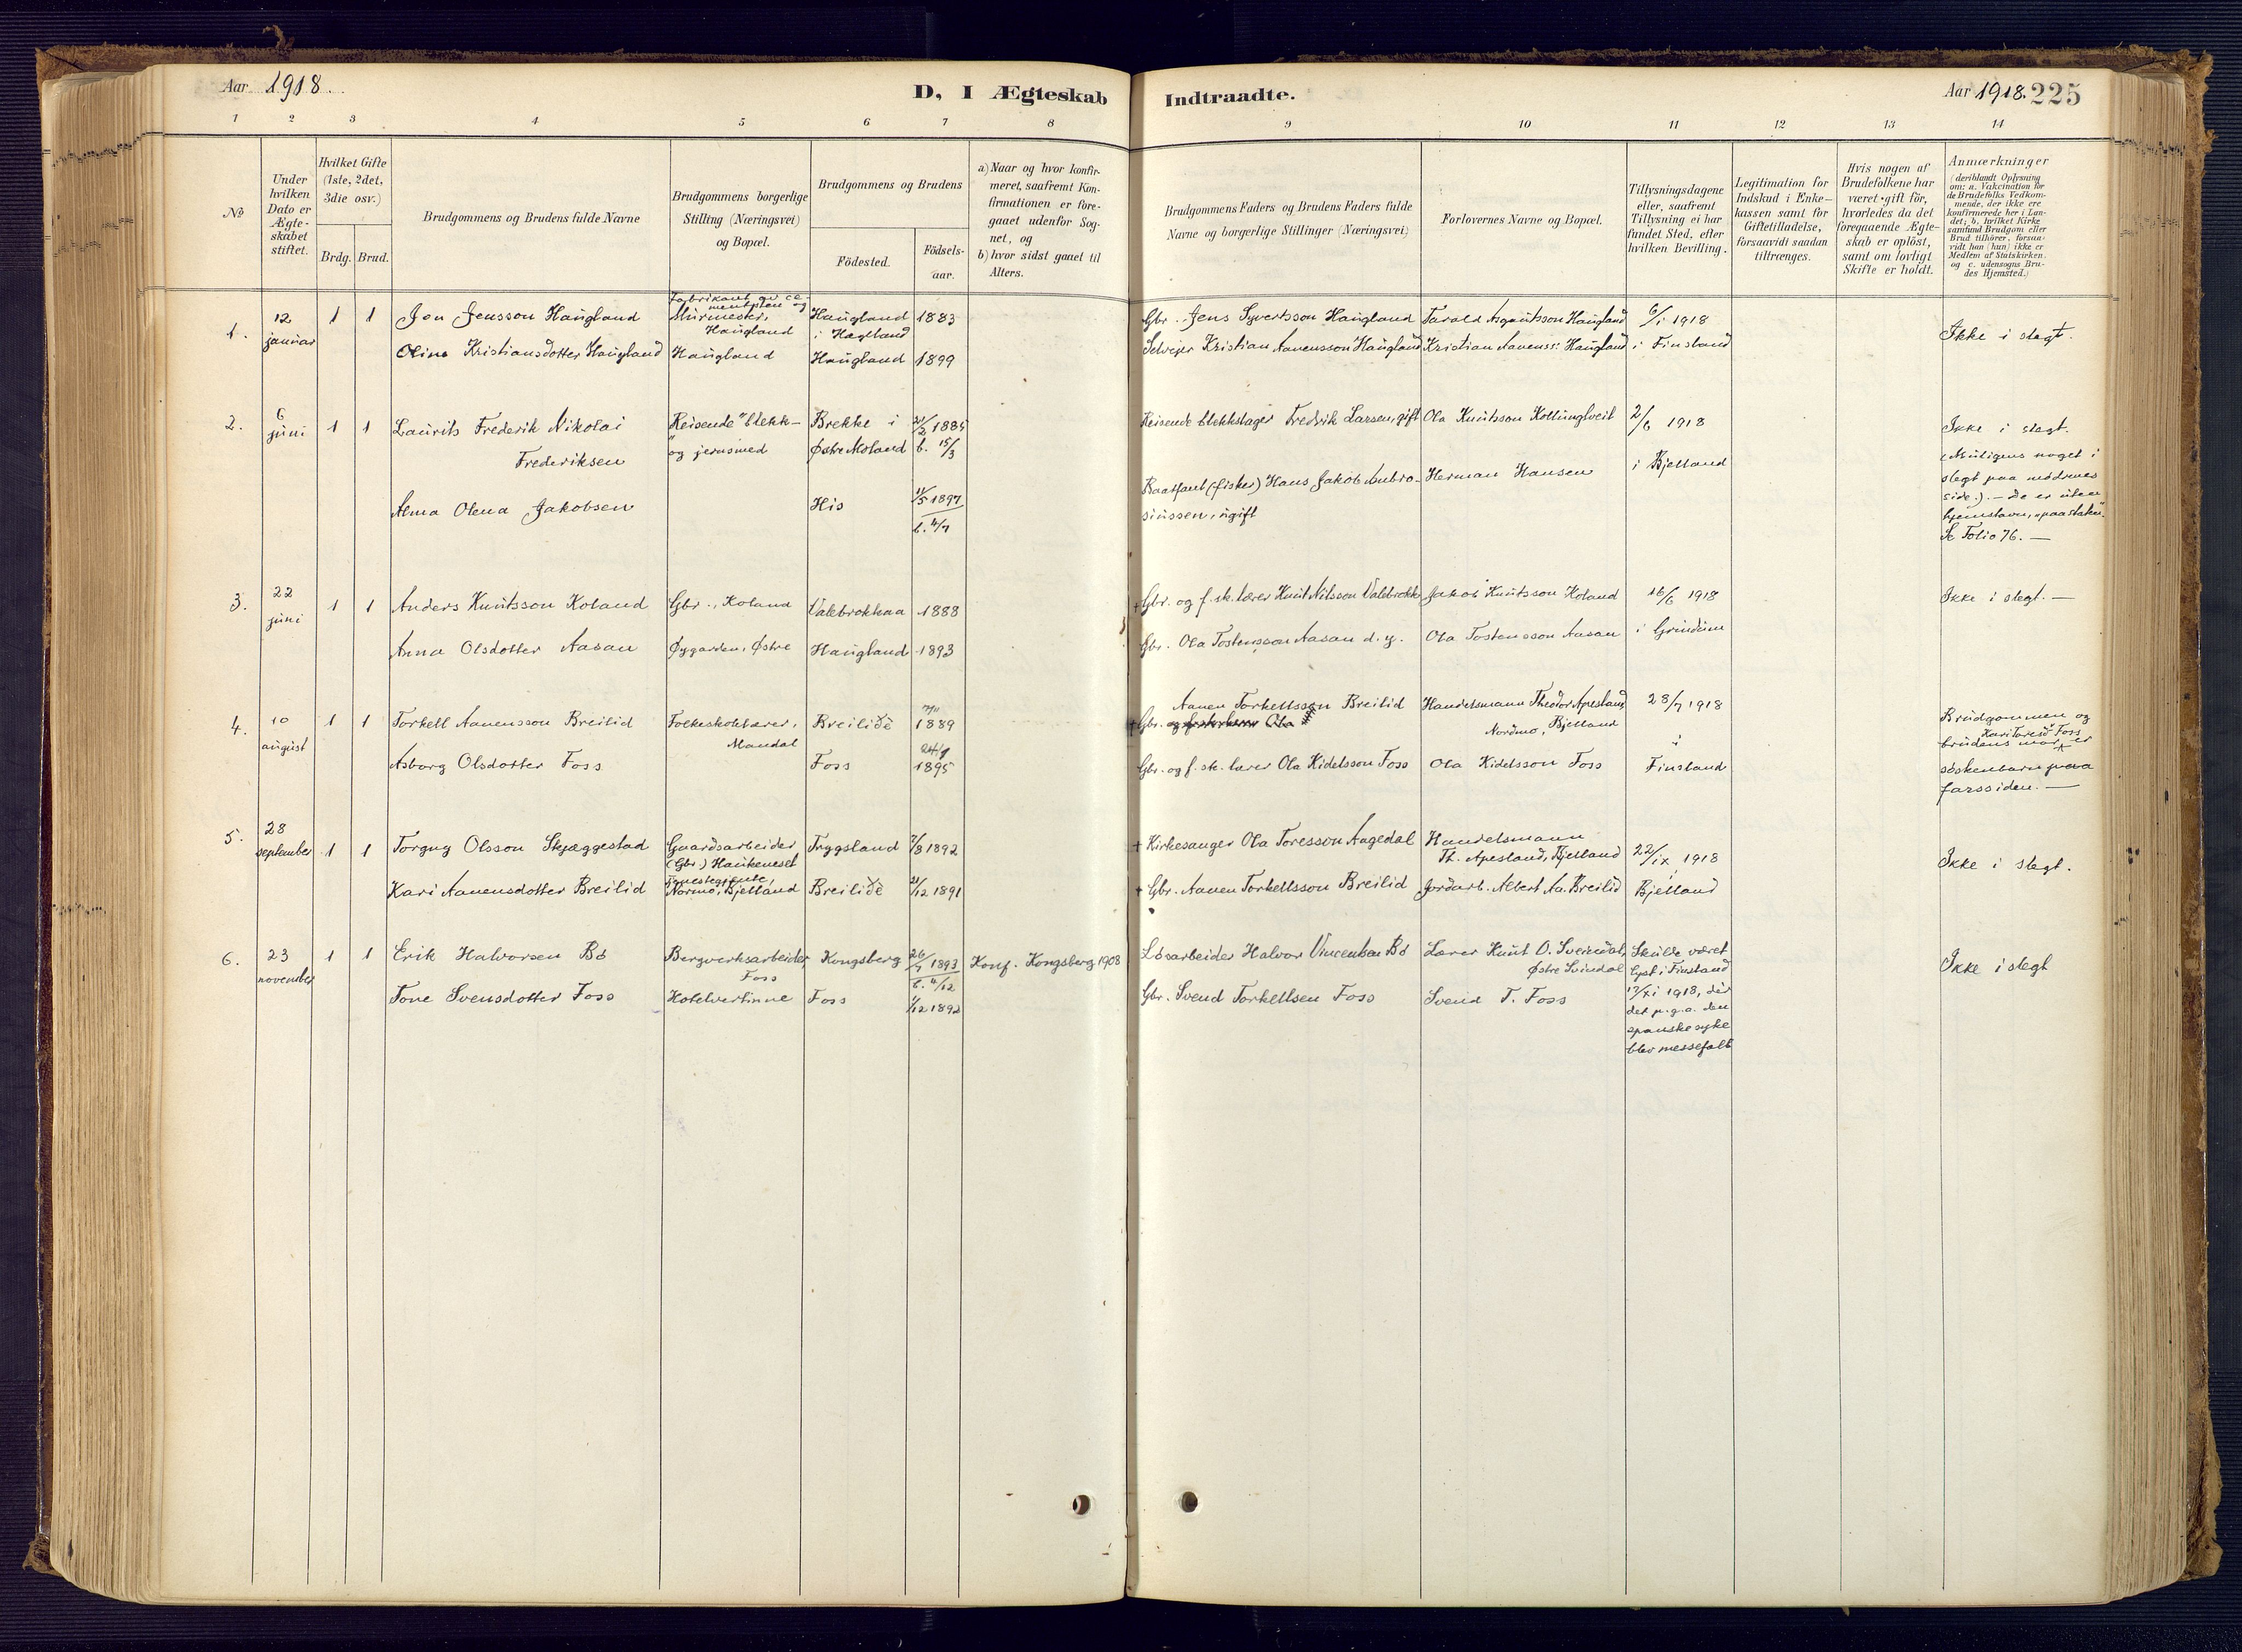 Aar 1918.
D, I Ægteskab
Indtraadte.
Aar 1918. 225
1 2 3 4 5 6 7 8
9 10 11 12 13 14
No
Under hvilken Dato er Ægte-skabet stiftet.
Hvilket Gifte (1ste, 2det, 3die osv.)
Brdg. Brud.
Brudgommens og Brudens fulde Navne
Brudgommens borgerlige Stilling (Næringsvei) og Bopæl.
Brudgommens og Brudens
Födested.
Födsels-aar.
a) Naar og hvor konfir-
meret, saafremt Kon-
firmationen er fore-
gaaet udenfor Sog-
net, og
b) hvor sidst gaaet til
Alters.
Brudgommens Faders og Brudens Faders fulde
Navne og borgerlige Stillinger (Næringsvei)
Forlovernes Navne og Bopæl.
Tillysningsdagene
eller, saafremt
Tillysning ei har
fundet Sted, efter
hvilken Bevilling.
Legitimation for
Indskud i Enke-
kassen samt for
Giftetilladelse,
forsaavidt saadan
tiltrænges.
Hvis nogen af
Brudefolkene har
været gift för,
hvorledes da det
foregaaende Ægte-
skab er oplöst,
samt om lovligt
Skifte er holdt.
Anmærkninger
(deriblandt Oplysning
om: a. Vakcination for
de Brudefolks Vedkom-
mende, der ikke ere
konfirmerede her i Lan-
det; b. hvilket Kirke
samfund Brudgom eller
Brud tilhörer, forsaa-
vidt han (hun) ikke er
Medlem af Statskirken,
og c. udensogns Bru-
des Hjemsted.)
1. 12 januar 1 1 Jen Jensson Haugland
Fabrikant av ce-
mentsten og
Murmester,
Haugland
Haugland
i Hægeland
1883
Gbr. Jens Syvertsson Haugland
Tarald Asgautsson Haugland
6/1 1918
Ikke i slegt.
Olina Kristiansdotter Haugland
Haugland
Haugland 1899
Selveier Kristian Aanensson Haugland
Kristian Aanenss: Haugland
i Finsland
2. 6 juni 1 1 Laurits Frederik Nikolai
Frederiksen
Reisende "blekk-
og jernsmed
Brekke i
Østre Moland
21/2 1885
b. 15/3
Reisende blekkslager Fredrik Larsen, gift
Ola Knutsson Kollungtveit
2/6 1918
Ikke i slegt.
(Muligens noget i
slegt paa mødrenes
side.). — De er uten
hjemstavn, "paa staten".
Se Folio 76. —
Alma Olena Jakobsen
His
11/5 1897
b. 4/7
Baatfant (fisker) Hans Jakob Ambro-
siussen, ugift
Herman Hansen
i Bjelland
3. 22 juni 1 1 Anders Knutsson Koland
Gbr., Koland
Valebrokkaa 1888
+ Gbr. og f. sk. lærer Knut Nilsson Valebrokk
Jakob Knutsson Koland
16/6 1918
Ikke i slegt. —
Anna Olsdotter Aasan
Øygarden, Østre
Haugland 1893
Gbr. Ola Tostensson Aasan d. y.
Ola Tostensson Aasan
i Grindum
4. 10 august 1 1 Torkell Aanensson Breilid
Folkeskolelærer,
Mandal
Breilidè
7/11
1889
Aanen Torkellsson Breilid
+ Gbr. Ola
Handelsmann Theodor Apesland,
Nordmo, Bjelland
28/7 1918
i
Finsland
Brudgommen og
Kari Toresd: Foss
brudens mor x er
søskenbarn paa
farssiden. —
Asborg Olsdotter Foss
Foss
24/1
1895
Gbr. og f. sk. lærer Ola Kidelsson Foss
Ola Kidelsson Foss
5. 28 september 1 1 Torgny Olsson Skjæggestad
Gaardsarbeider
(Gbr.) Haukenesel
Trygsland
7/8 1892
+ Kirkesanger Ola Toresson Aagedal
Handelsmann
Th. Apesland, Bjelland
22/ix 1918
i
Bjelland
Ikke i slegt.
Kari Aanensdotter Breilid
Tjenestegjente,
Normo, Bjelland
Breilidè
21/12 1891
+ Gbr. Aanen Torkellsson Breilid
Jordarb. Albert Aa. Breilid
6. 23 november 1 1 Erik Halvorsen Bø
Bergverksarbeider,
Foss
Kongsberg
26/7 1893
b. 4/12
Konf. Kongsberg 1908
Løsarbeider Halvor Vincentsen Bø
Lærer Knut O. Sveindal,
Østre Svindal
Skulde været
lyst i Finsland
17/xi 1918, der
det p.g.a. den
spanske syke
blev messefalt
Ikke i slegt
Tone Svensdotter Foss
Hotelvertinne
Foss
1/12 1892
Gbr. Svend Torkellsen Foss
Svend T. Foss